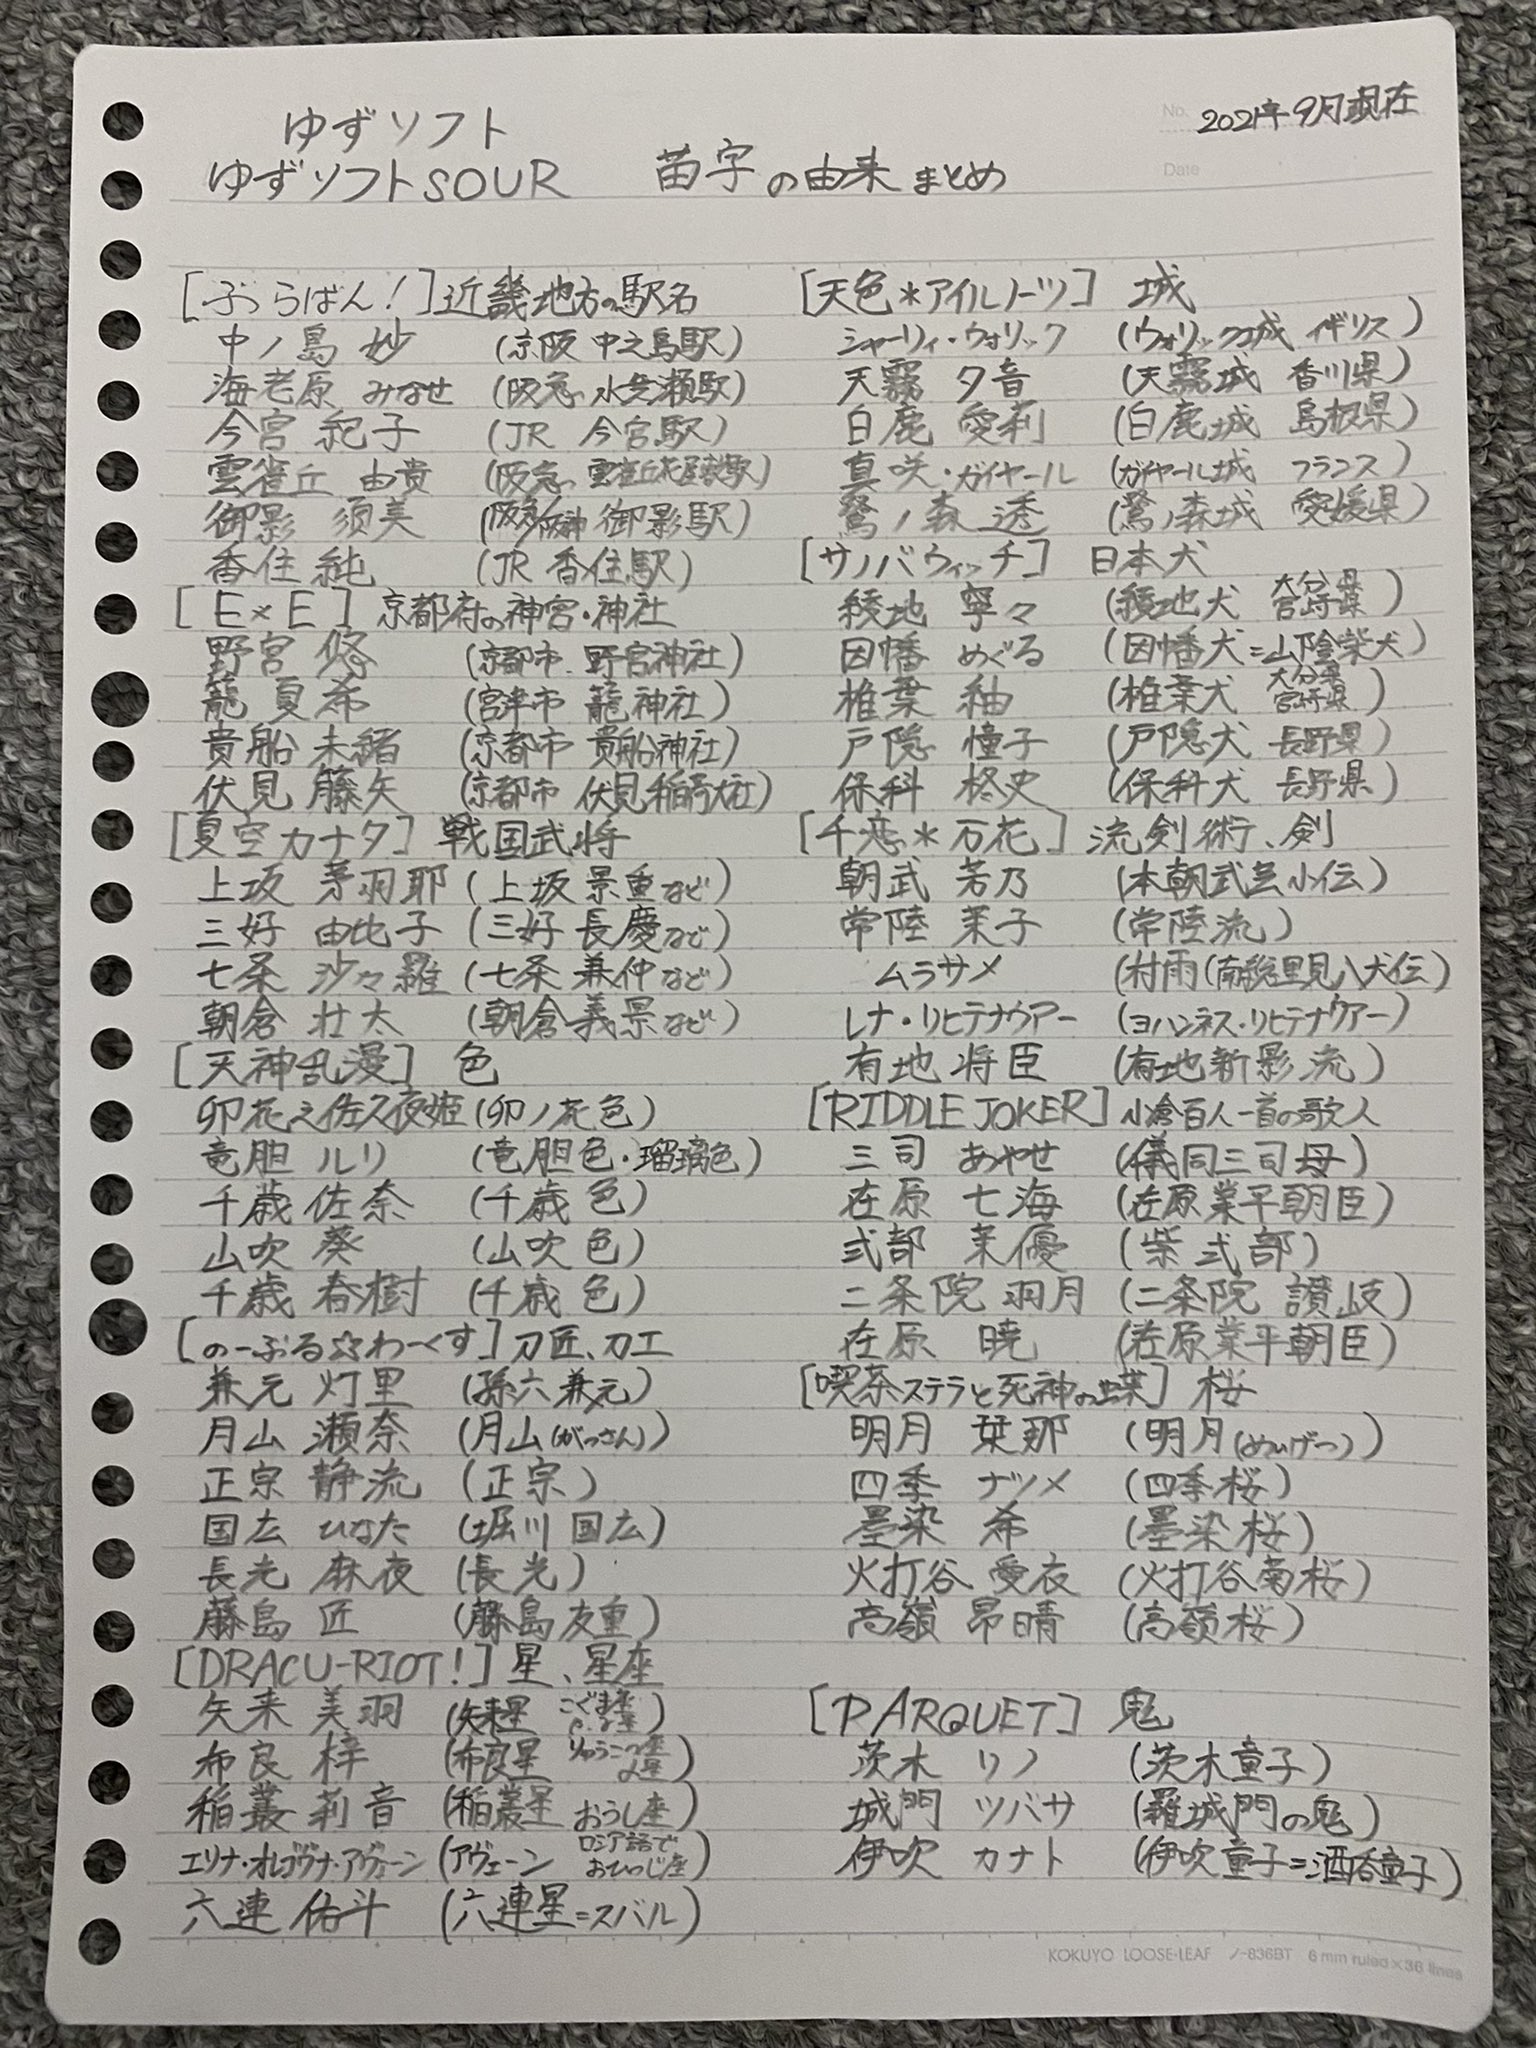 No.
2021年9月現在
Date
ゆずソフト
ゆずソフトSOUR 苗字の由来まとめ
[ぶらばん!]近畿地方の駅名
中ノ島 妙 (京阪 中之島駅)
海老原 みなせ (阪急 水無瀬駅)
今宮 紀子 (JR 今宮駅)
雲雀丘 由貴 (阪急 雲雀丘花屋敷駅)
御影 須美 (阪急/阪神 御影駅)
香住 純 (JR 香住駅)
[E×E] 京都府の神宮・神社
野宮 悠 (京都市 野宮神社)
籠 夏希 (宮津市 籠神社)
貴船 未緒 (京都市 貴船神社)
伏見 藤矢 (京都市 伏見稲荷大社)
[夏空カナタ] 戦国武将
上坂 茅羽耶 (上坂景重など)
三好 由比子 (三好長慶など)
七条 沙々羅 (七条兼仲など)
朝倉 壮太 (朝倉義景など)
[天神乱漫] 色
卯花之佐久夜姫 (卯ノ花色)
竜胆 ルリ (竜胆色・瑠璃色)
千歳 佐奈 (千歳色)
山吹 葵 (山吹色)
千歳 春樹 (千歳色)
[のーぶる☆わーくす] 刀匠、刀工
兼元 灯里 (孫六兼元)
月山 瀬奈 (月山(がっさん))
正宗 静流 (正宗)
国広 ひなた (堀川国広)
長光 麻夜 (長光)
藤島 匠 (藤島友重)
[DRACU-RIOT!] 星、星座
矢来 美羽 (矢来星 こぐま座)
布良 梓 (布良星 りゅうこつ座 α星)
稲叢 莉音 (稲叢星 おうし座)
エリナ・オレゴヴナ・アヴェーン (アヴェーン ロシア語でおひつじ座)
六連 佑斗 (六連星=スバル)
[天色*アイルノーツ] 城
シャーリィ・ウォリック (ウォリック城 イギリス)
天霧 夕音 (天霧城 香川県)
白鹿 愛莉 (白鹿城 島根県)
真咲・ガイヤール (ガイヤール城 フランス)
鷺ノ森 透 (鷺ノ森城 愛媛県)
[サノバウィッチ] 日本犬
綾地 寧々 (綾地犬 大分県 宮崎県)
因幡 めぐる (因幡犬=山陰柴犬)
椎葉 紬 (椎葉犬 大分県 宮崎県)
戸隠 憧子 (戸隠犬 長野県)
保科 柊史 (保科犬 長野県)
[千恋*万花] 流剣術、剣
朝武 芳乃 (本朝武芸小伝)
常陸 茉子 (常陸流)
ムラサメ (村雨(南総里見八犬伝)
レナ・リヒテナウアー (ヨハンネス・リヒテナウアー)
有地 将臣 (有地新影流)
[RIDDLE JOKER] 小倉百人一首の歌人
三司 あやせ (儀同三司母)
在原 七海 (在原業平朝臣)
式部 茉優 (紫式部)
二条院 羽月 (二条院 讃岐)
在原 暁 (在原業平朝臣)
[喫茶ステラと死神の蝶] 桜
明月 栞那 (明月(めいげつ))
四季 ナツメ (四季桜)
墨染 希 (墨染桜)
火打谷 愛衣 (火打谷菊桜)
高嶺 昂晴 (高嶺桜)
[PARQUET] 鬼
茨木 リノ (茨木童子)
城門 ツバサ (羅城門の鬼)
伊吹 カナト (伊吹童子=酒呑童子)
KOKUYO LOOSE-LEAF ノ-836BT 6mm ruled×36 lines